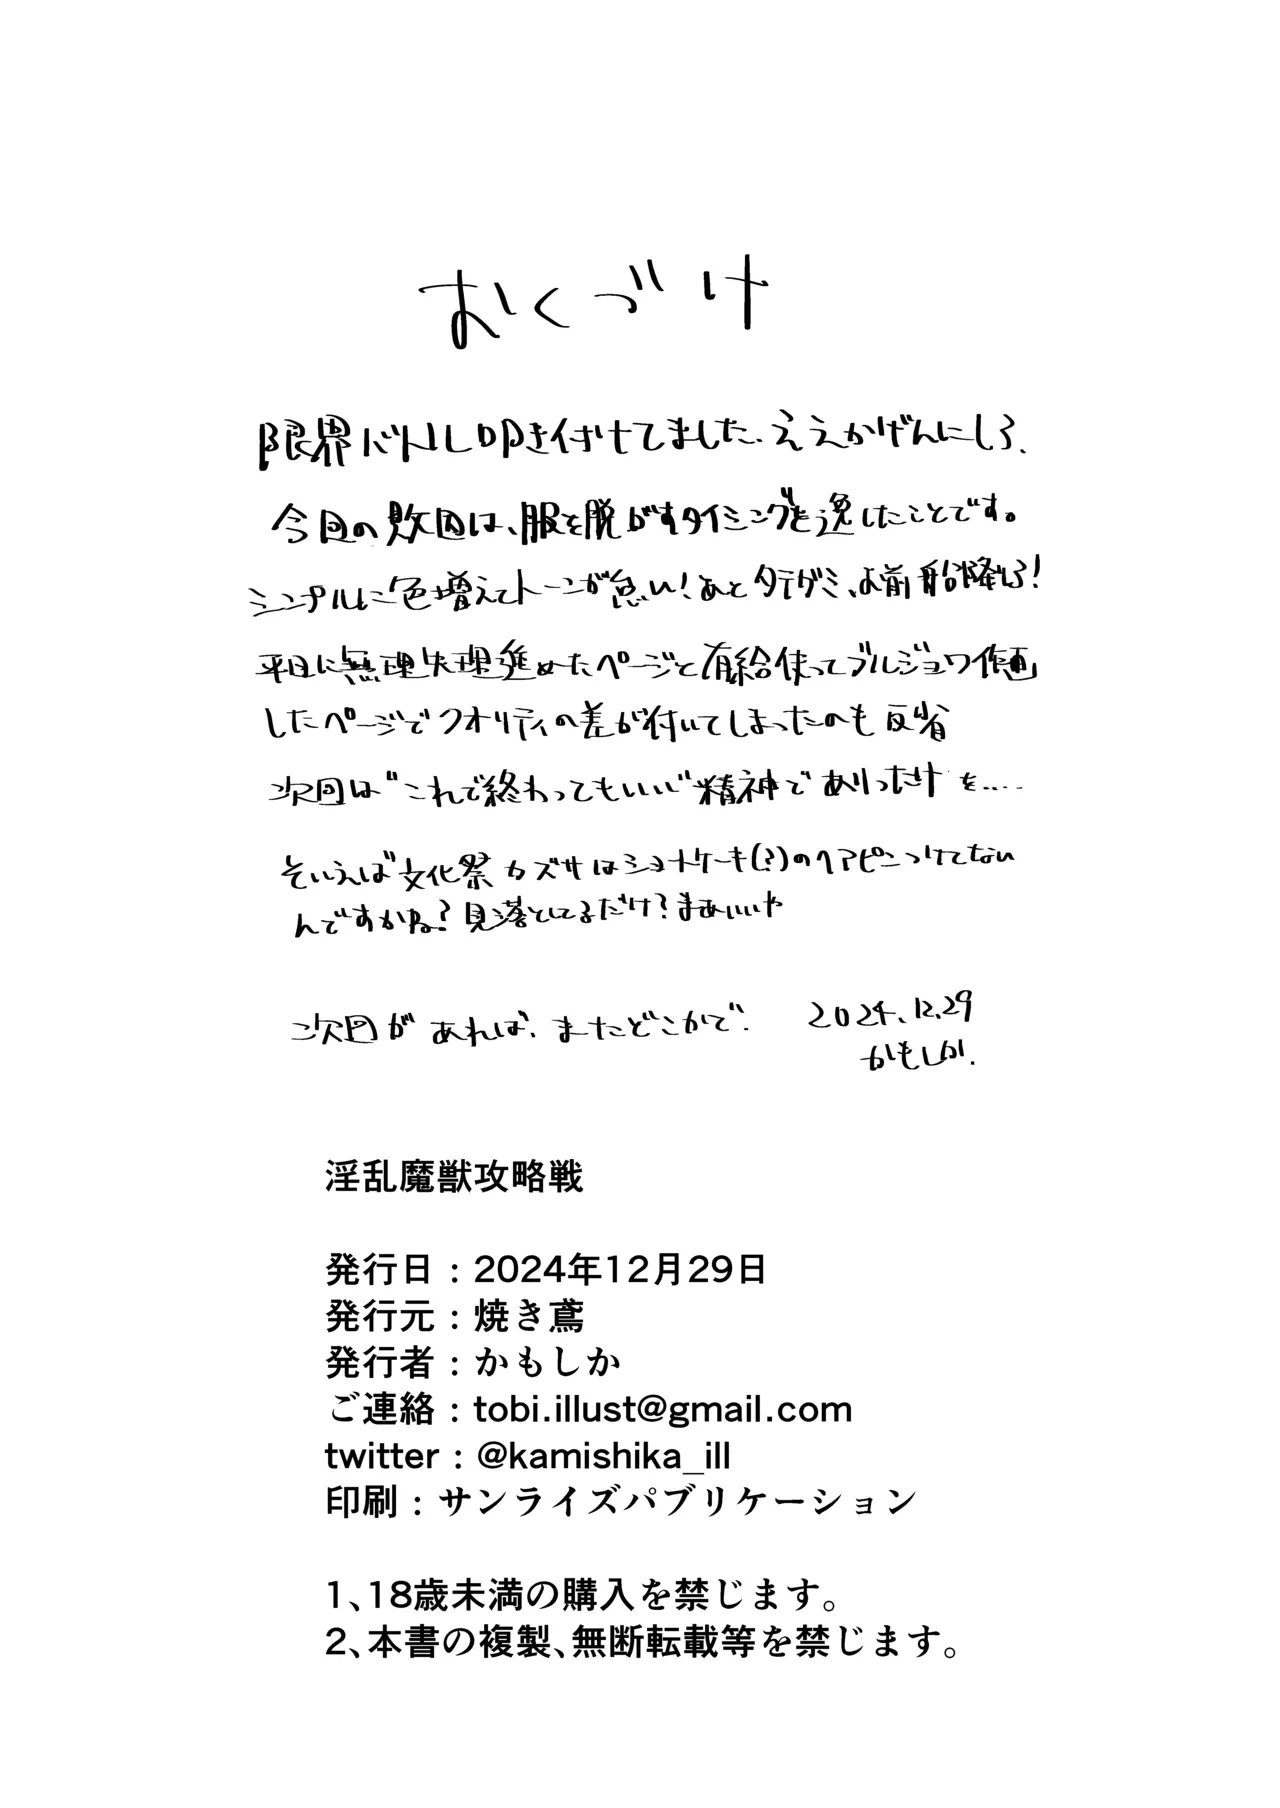 おくづけ
限界バトル叩き付けてました、ええかげんにしろ、
今回の敗因は、服を脱がすタイミングを逸したことです。
シンプルに色増えてトーンが怠い!あとタテグミ、お前船降りろ!
平日に無理矢理進めたページと有給使ってブルジョワ作画
したページでクオリティの差が付いてしまったのも反省
次回は"これで終わってもいい"精神でありったけを……
そいえば文化祭カズサはショートケーキ(?)のヘアピンつけてない
んですかね?見落としてるだけ?まあいいや
次回があれば、またどこかで、
2024.12.29
かもしか.
淫乱魔獣攻略戦
発行日:2024年12月29日
発行元:焼き鳶
発行者:かもしか
ご連絡:tobi.illust@gmail.com
twitter:@kamishika_ill
印刷:サンライズパブリケーション
1、18歳未満の購入を禁じます。
2、本書の複製、無断転載等を禁じます。